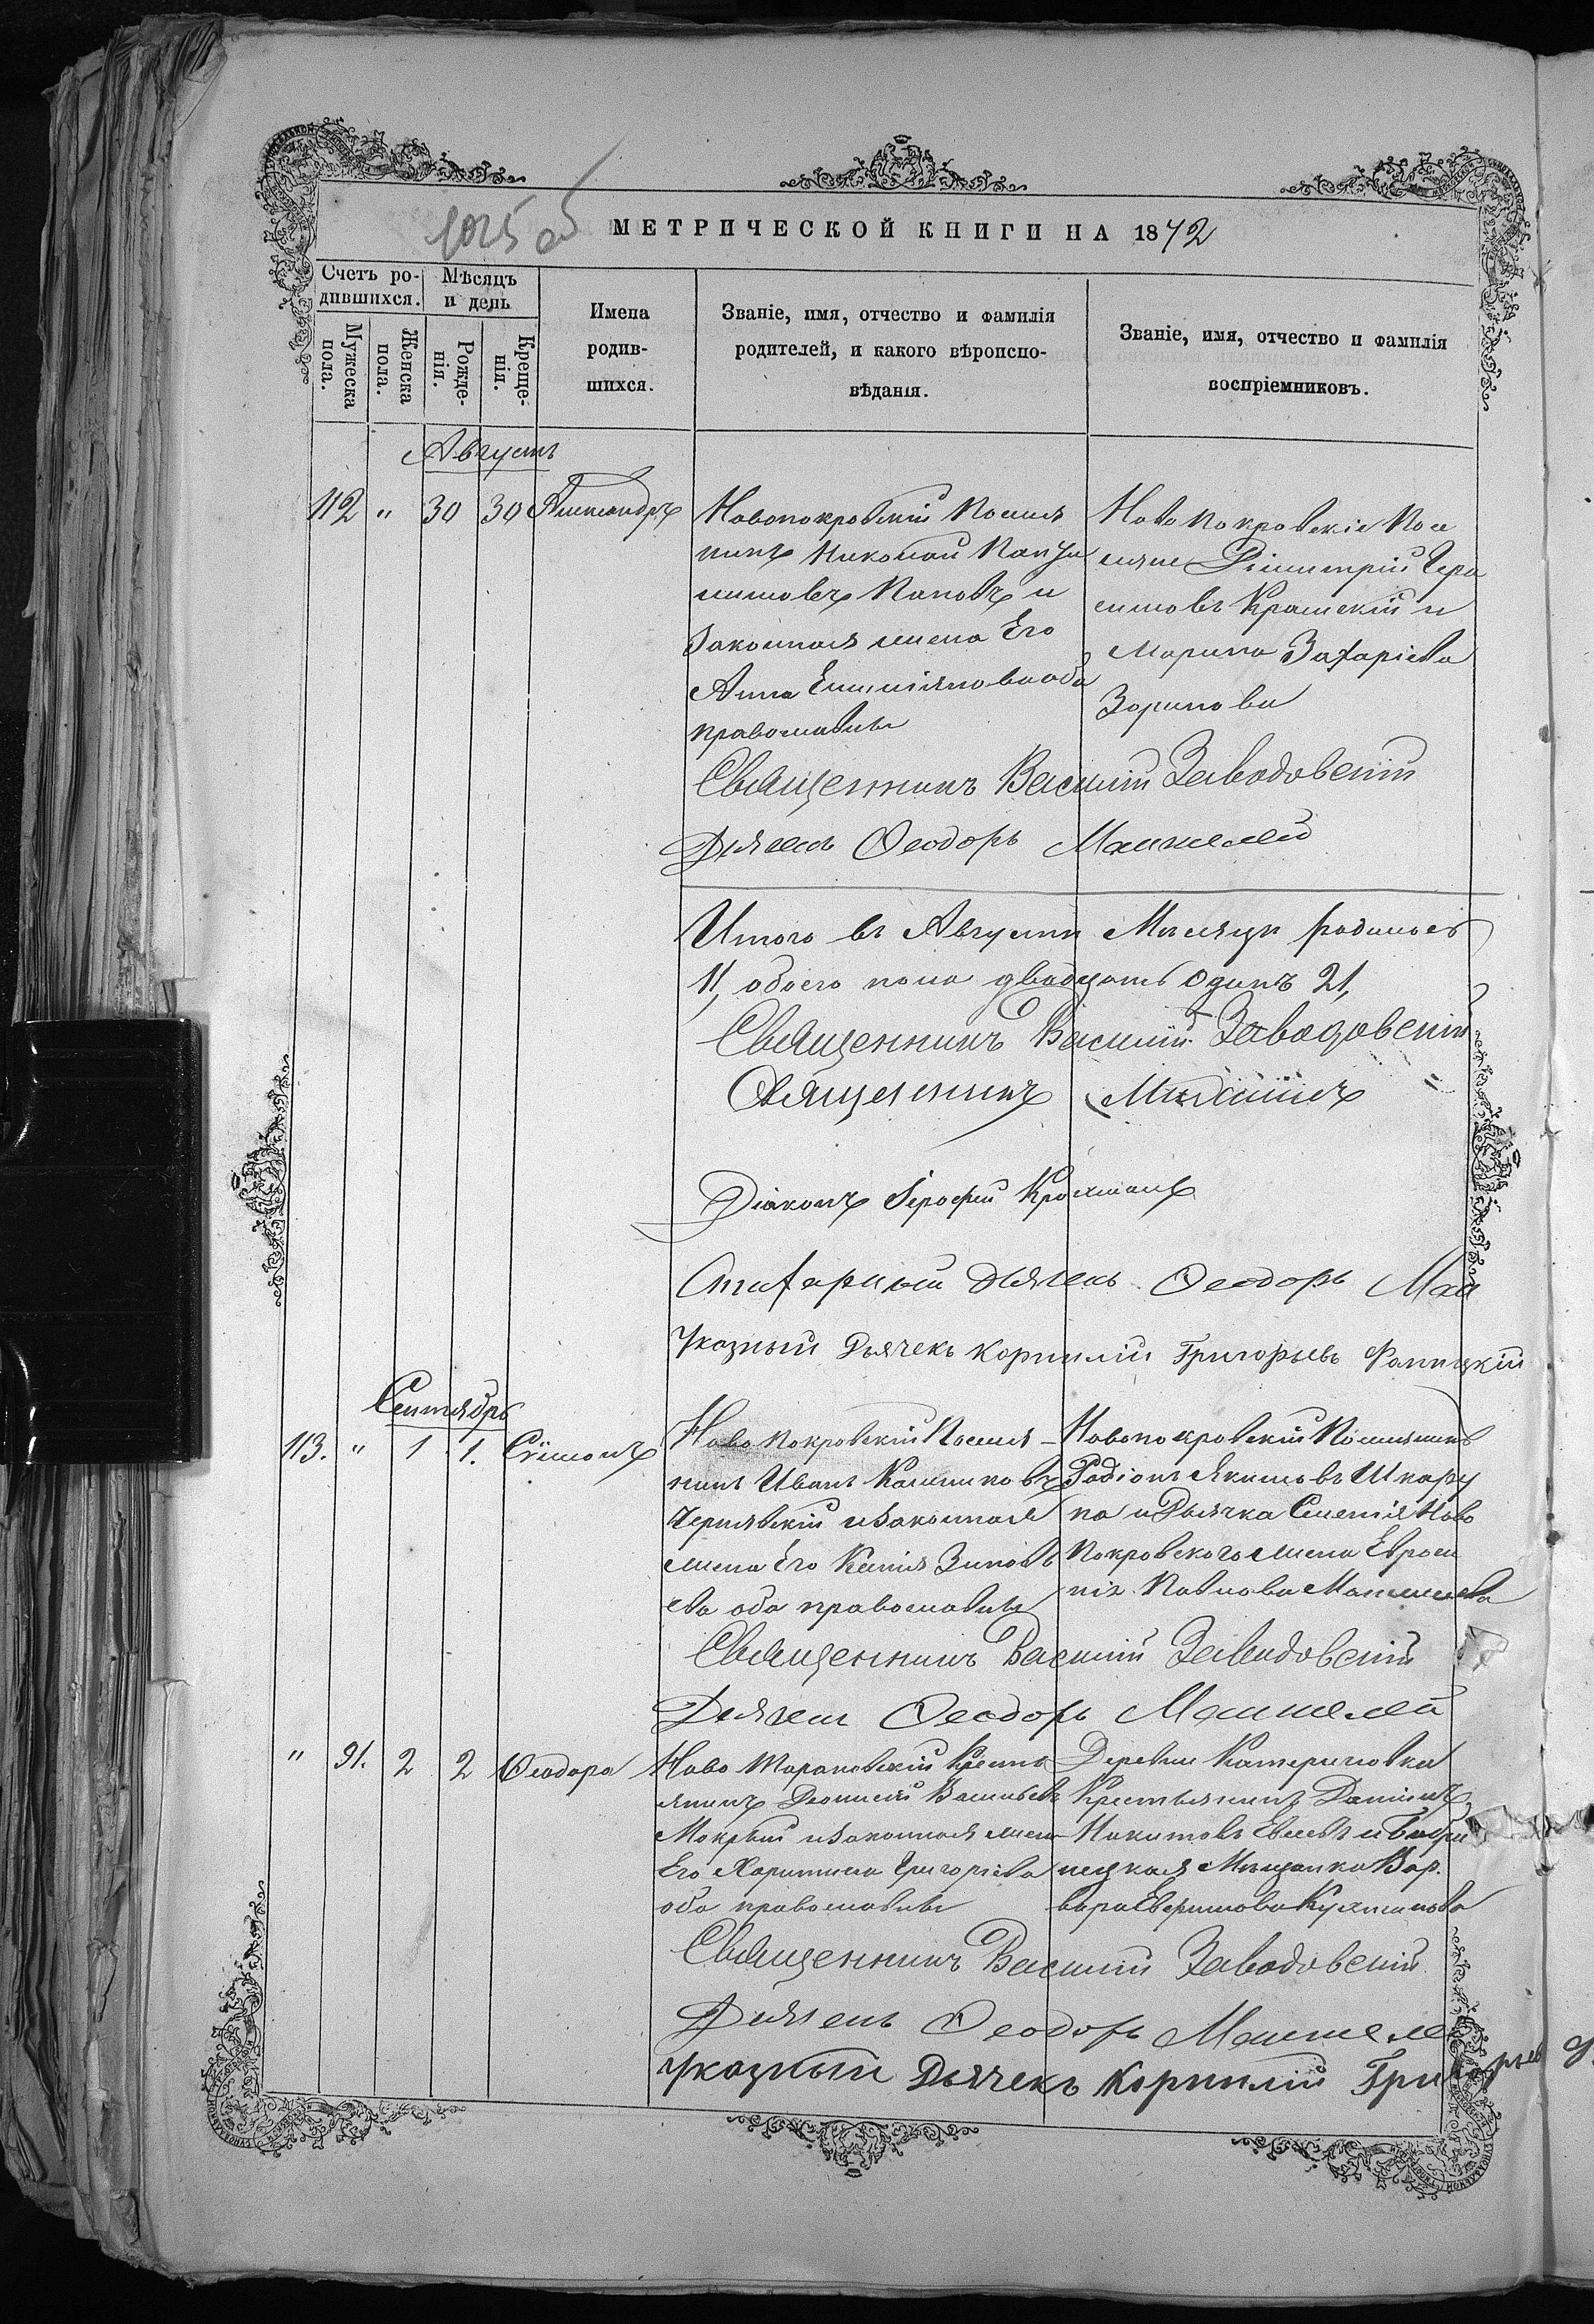 1025 об
МЕТРИЧЕСКОЙ КНИГИ НА 1872
Счетъ ро-
дившихся.
Мѣсяцъ
и день
Мужеска
пола.
Женска
пола.
Рожде-
нія.
Креще-
нія.
Имена
родив-
шихся.
Званіе, имя, отчество и фамилія
родителей, и какого вѣроиспо-
вѣданія.
Званіе, имя, отчество и фамилія
воспріемниковъ.
Августъ
112 " 30 30 Александръ
Новопокровскій Поселя
нинъ Николай
Поповъ и
Законная жена Его
Анна Емиліянова оба
православны
Ново Покровскіе Посе
ляне Димитрій Гера
симовъ Крамскій и
Марина Захаріева
Зоринова
Священникъ Василій Заводовскій
Дьячекъ Ѳеодоръ
Итого въ Августѣ Мѣсяцѣ родилось
11, обоего пола двадцать одинъ 21,
Священникъ Василій Заводовскій
Священникъ
Діаконъ Іерофей
Стихарный Дьячекъ Ѳеодоръ
Указный Дьячекъ Корнилій Григорьевъ
Сентябрь
113. " 1 1. Сѵмеонъ
Ново Покровскій Поселя-
нинъ Иванъ Калинниковъ
Чернявскій и Законная
жена Его Ксенія Зиновь
ева оба православны
Новопокровскій Поселянинъ
Родіонъ Якимовъ Шкару
па и Дьячка Селенія Ново
Покровского жена Евроси
нія Павлова
Священникъ Василій Заводовскій
Дьячекъ Ѳеодоръ
" 91. 2 2 Ѳеодора
Ново Марановскій Кресть
янинъ Діонисій Васильевъ
Мокрый и законная жена
Его Харитина Григоріева
оба православны
Деревни Катериновки
Крестьянинъ Даніилъ
Никитовъ и
Мѣщанка Вар.
вара
Священникъ Василій Заводовскій
Дьячекъ Ѳеодоръ
Указный Дьячекъ Корнилій Григорьевъ